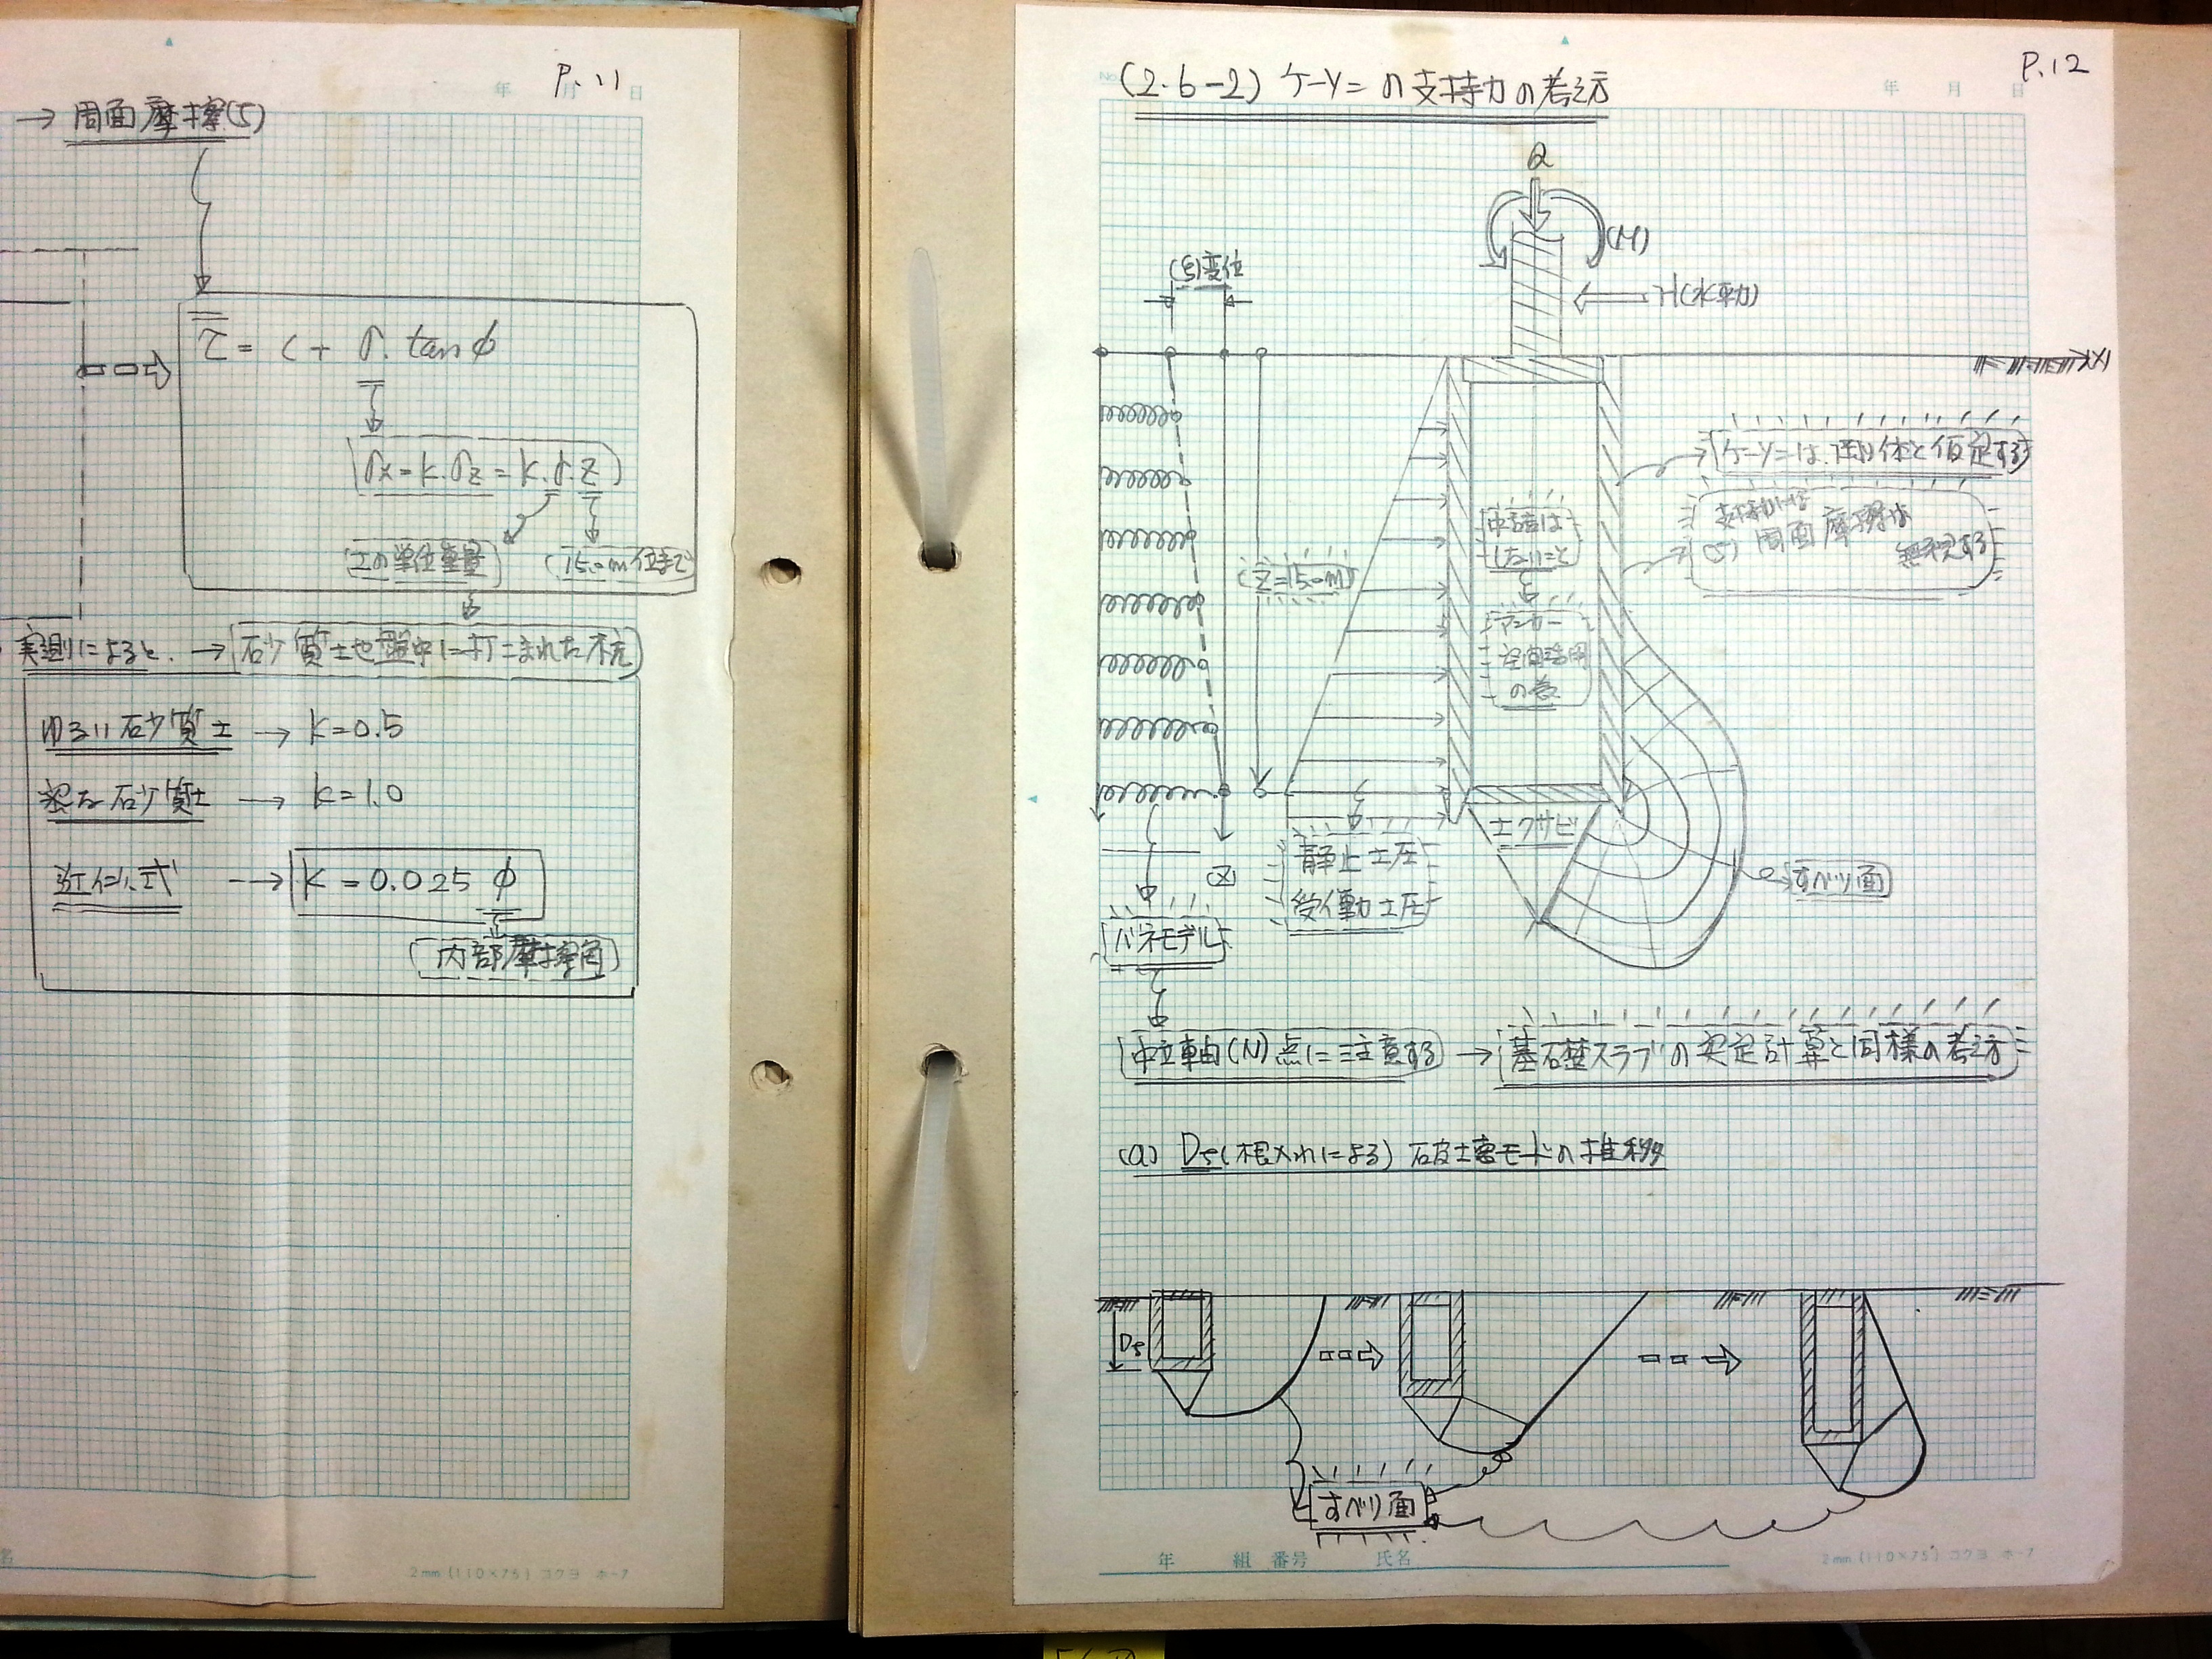 P.11
年 月 日
→ 周面摩擦(S)
τ = C + σ. tanφ
(σx = k.σz = k.γ.z)
(土の単位重量) (15.0m位まで)
実測によると、→ 砂質土地盤中に打こまれた杭
ゆるい砂質土 → k=0.5
密な砂質土 → k=1.0
近似式 → k = 0.025 φ
(内部摩擦角)
2mm (110×75) コクヨ ホ-7
P.12
No.
年 月 日
(2.6-2) ケーソンの支持力の考え方
Q
(M)
(S)変位
H(水平力)
(X)
ケーソンは、剛体と仮定する
支持力には
(S) 周面摩擦は
無視する
中空は
したいこと
アンカー
空間活用
の為
(Z=15.0m)
土クサビ
静止土圧
受働土圧
(Z)
すべり面
バネモデル
中立軸(N)点に注意する → 基礎スラブの安定計算と同様の考え方
(a) Df(根入れによる) 破壊モードの推移
Df
すべり面
年 組 番号 氏名
2mm (110×75) コクヨ ホ-7